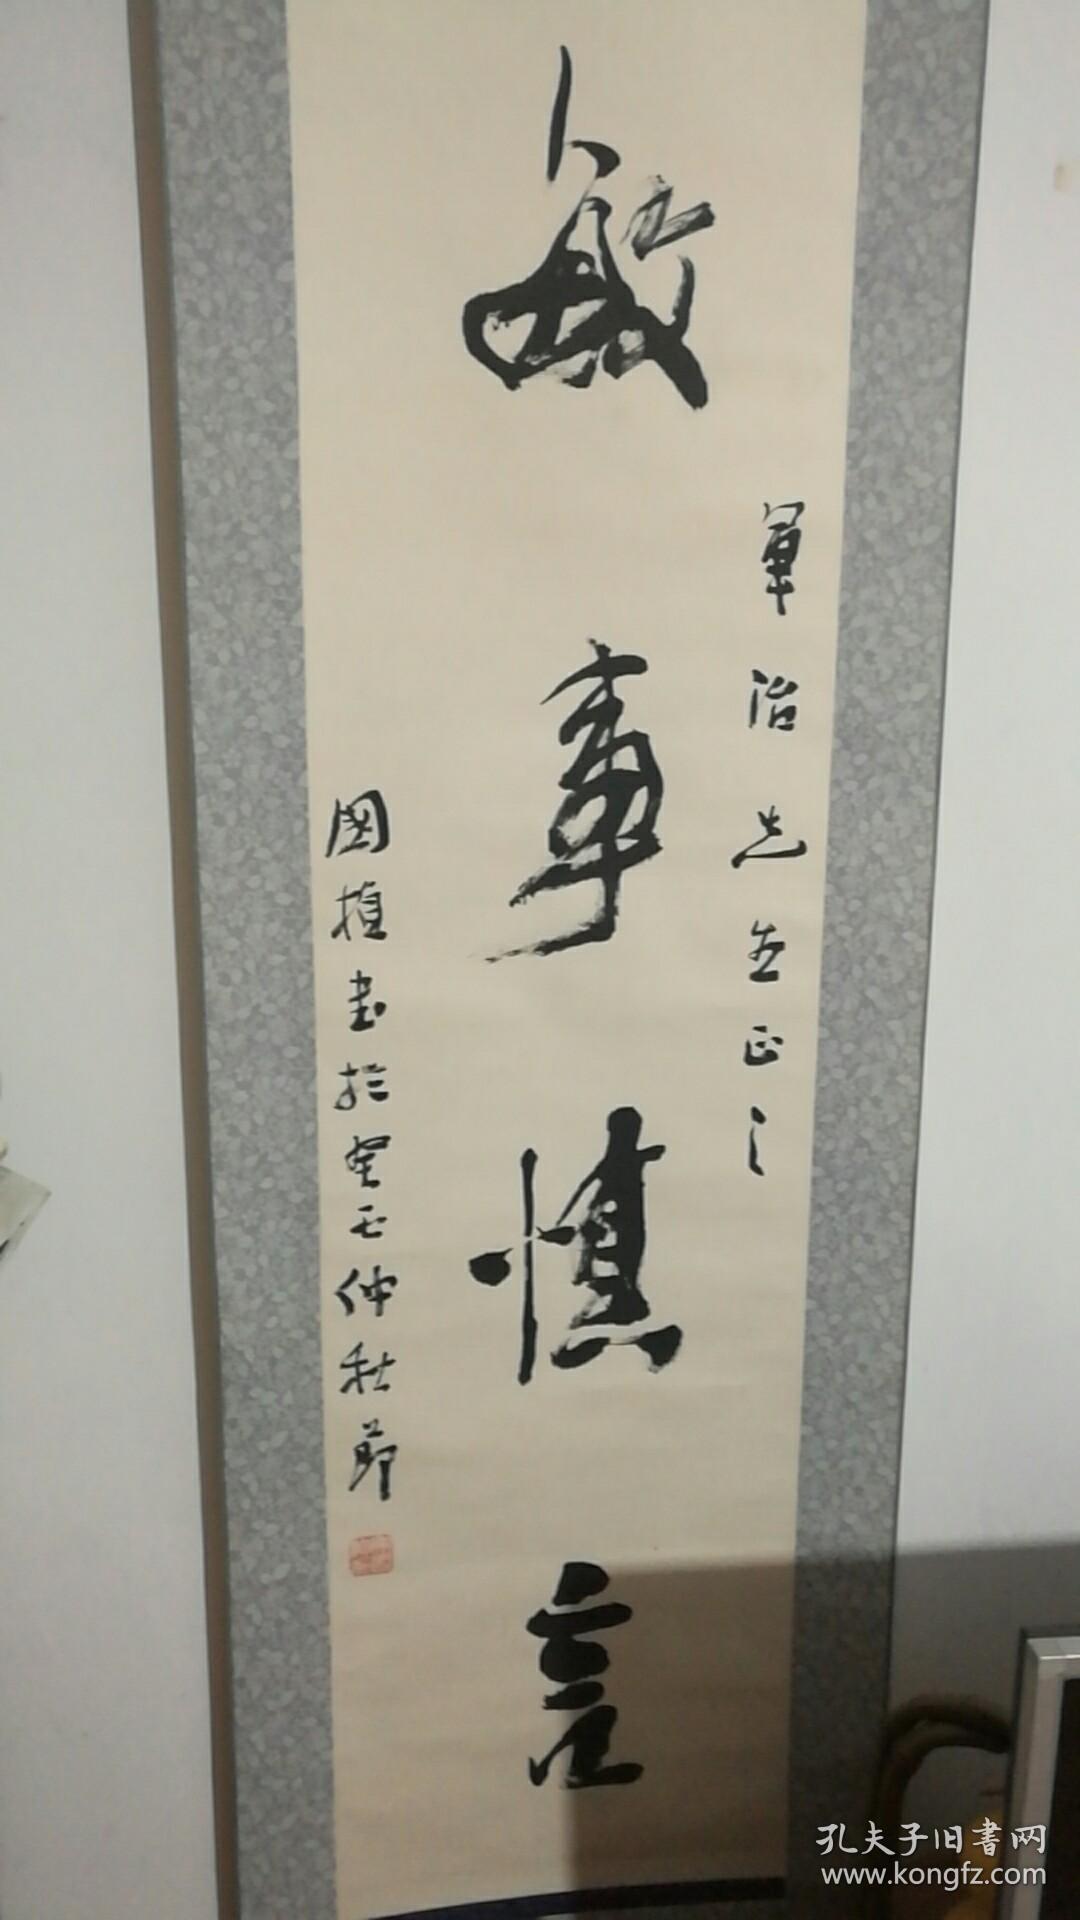 軍治先生正之
敏事慎言
國植書於癸亥仲秋節
孔夫子旧書网
www.kongfz.com